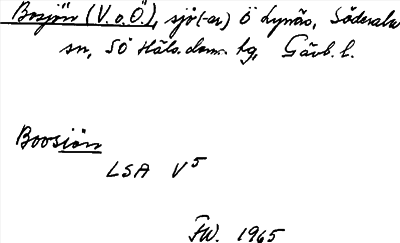 Bosjön (V. o. Ö.), sjö(-ar) Ö Lynäs, Söderala
sn, SÖ Häls. doms. tg, Gävb. l.
Boosiön
LSA V 5
FW. 1965